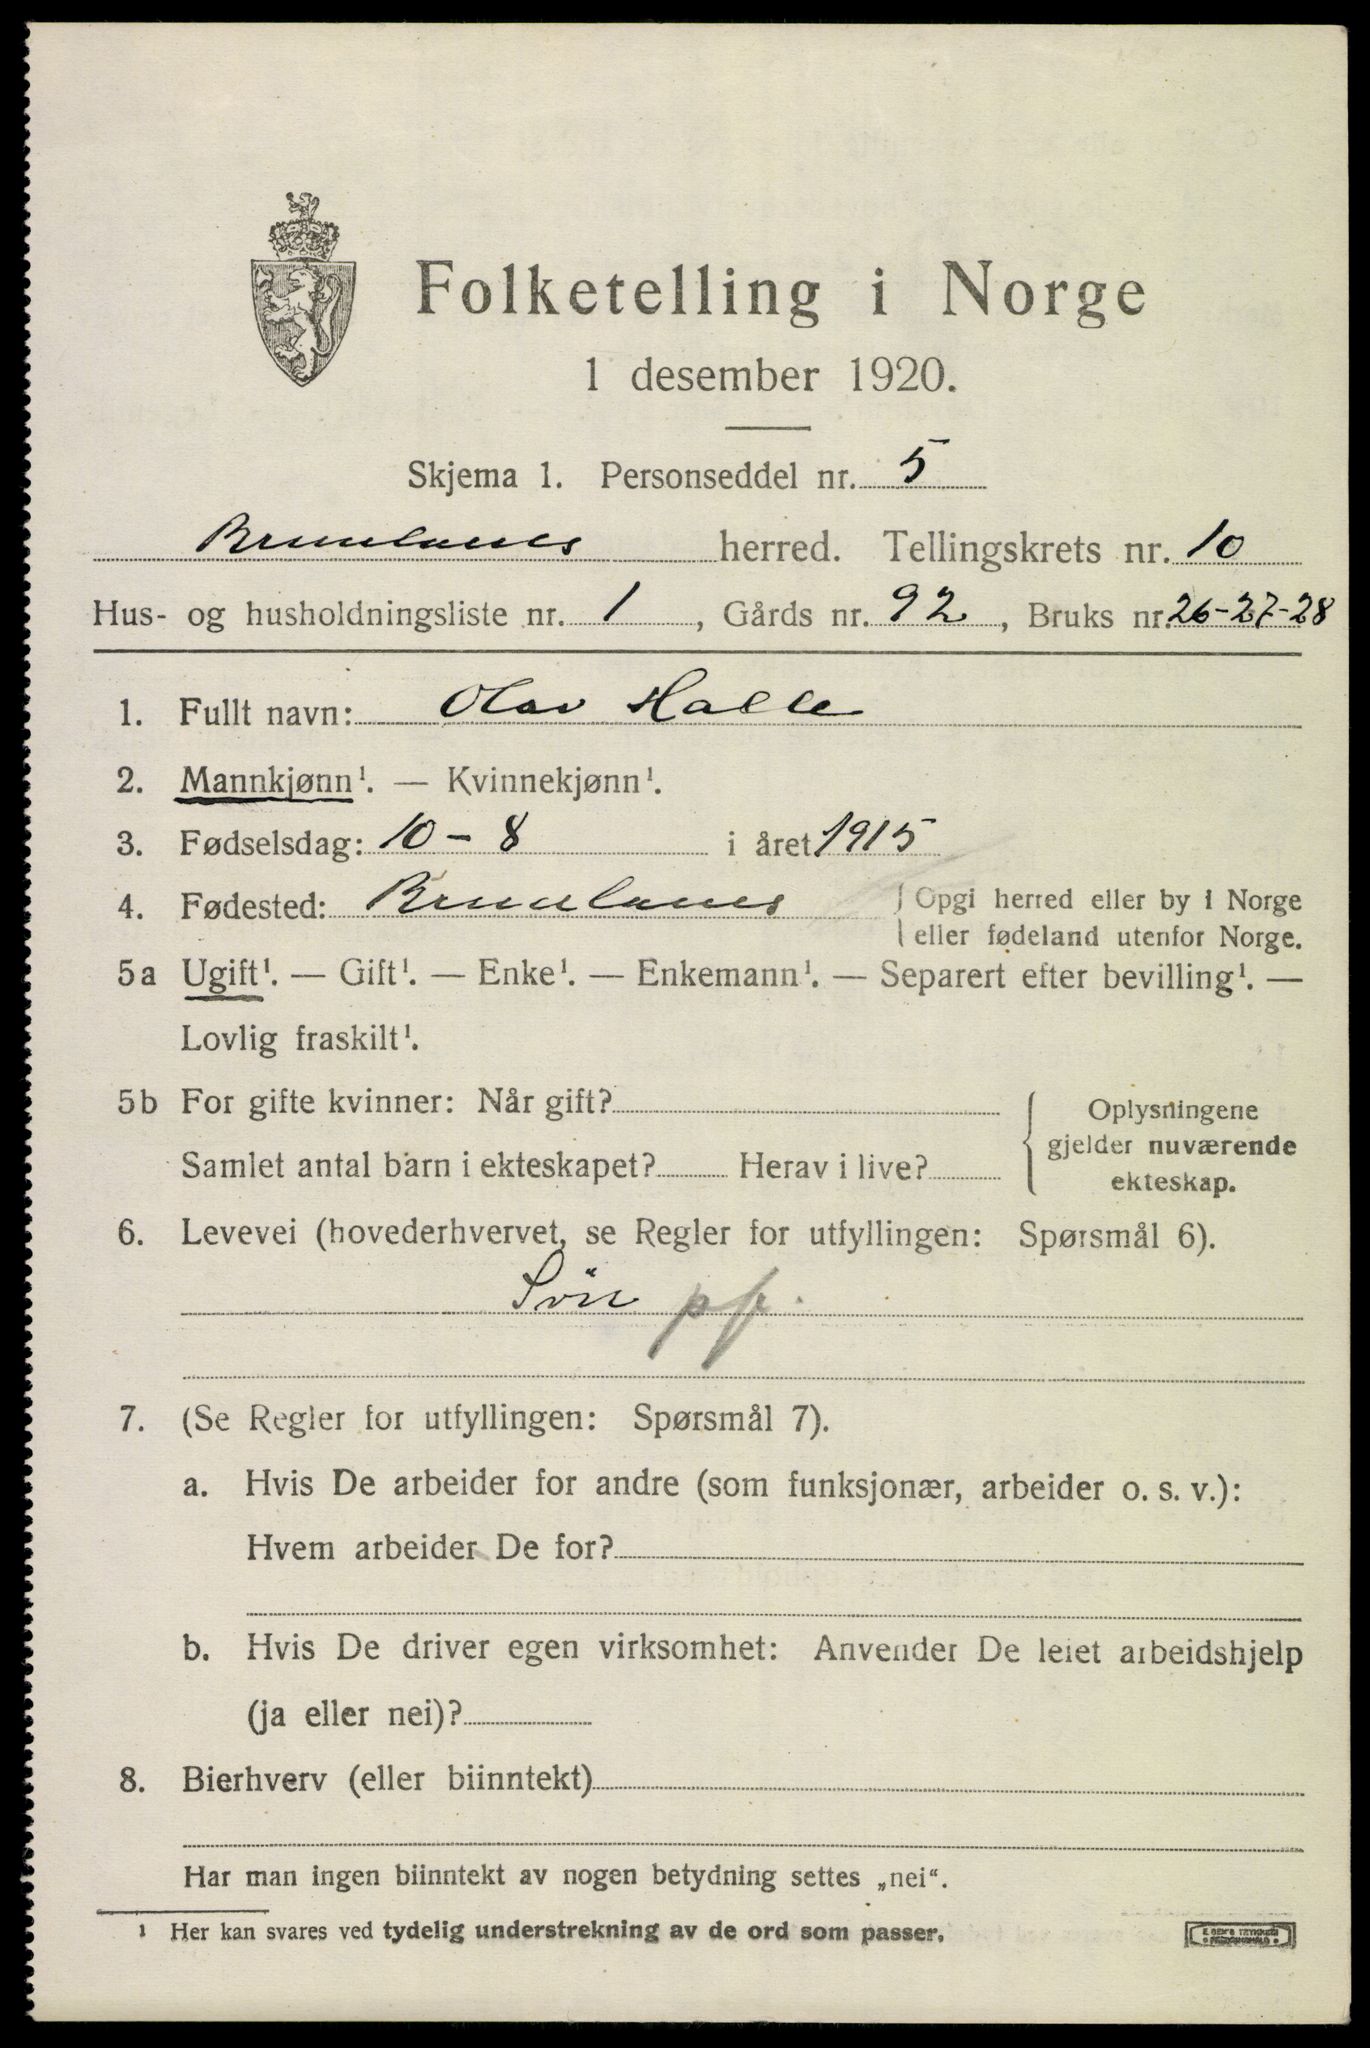 Folketelling i Norge
1 desember 1920.
Skjema 1. Personseddel nr. 5
Brunlanes herred. Tellingskrets nr. 10
Hus- og husholdningsliste nr. 1, Gårds nr. 92, Bruks nr. 26-27-28
1. Fullt navn: Olav Halle
2. Mannkjønn¹. — Kvinnekjønn¹.
3. Fødselsdag: 10 - 8 i året 1915
4. Fødested: Brunlanes { Opgi herred eller by i Norge
eller fødeland utenfor Norge.
5a Ugift¹. — Gift¹. — Enke¹. — Enkemann¹. — Separert efter bevilling¹. —
Lovlig fraskilt¹.
5b For gifte kvinner: Når gift? { Oplysningene
gjelder nuværende
Samlet antal barn i ekteskapet? Herav i live?
ekteskap.
6. Levevei (hovederhvervet, se Regler for utfyllingen: Spørsmål 6).
Sön pf.
7. (Se Regler for utfyllingen: Spørsmål 7).
a. Hvis De arbeider for andre (som funksjonær, arbeider o. s. v.):
Hvem arbeider De for?
b. Hvis De driver egen virksomhet: Anvender De leiet arbeidshjelp
(ja eller nei)?
8. Bierhverv (eller biinntekt)
Har man ingen biinntekt av nogen betydning settes „nei“.
¹ Her kan svares ved tydelig understrekning av de ord som passer.